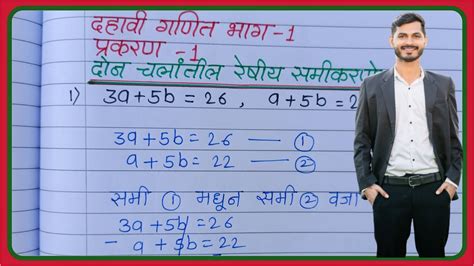 दहावी गणित भाग-1
प्रकरण -1
दोन चलांतील रेषीय समीकरणे
1) 3a+5b=26, a+5b=2
3a+5b=26 — ①
a+5b=22 — ②
समी ① मधून समी ② वजा
3a+5b=26
- a+5b=22